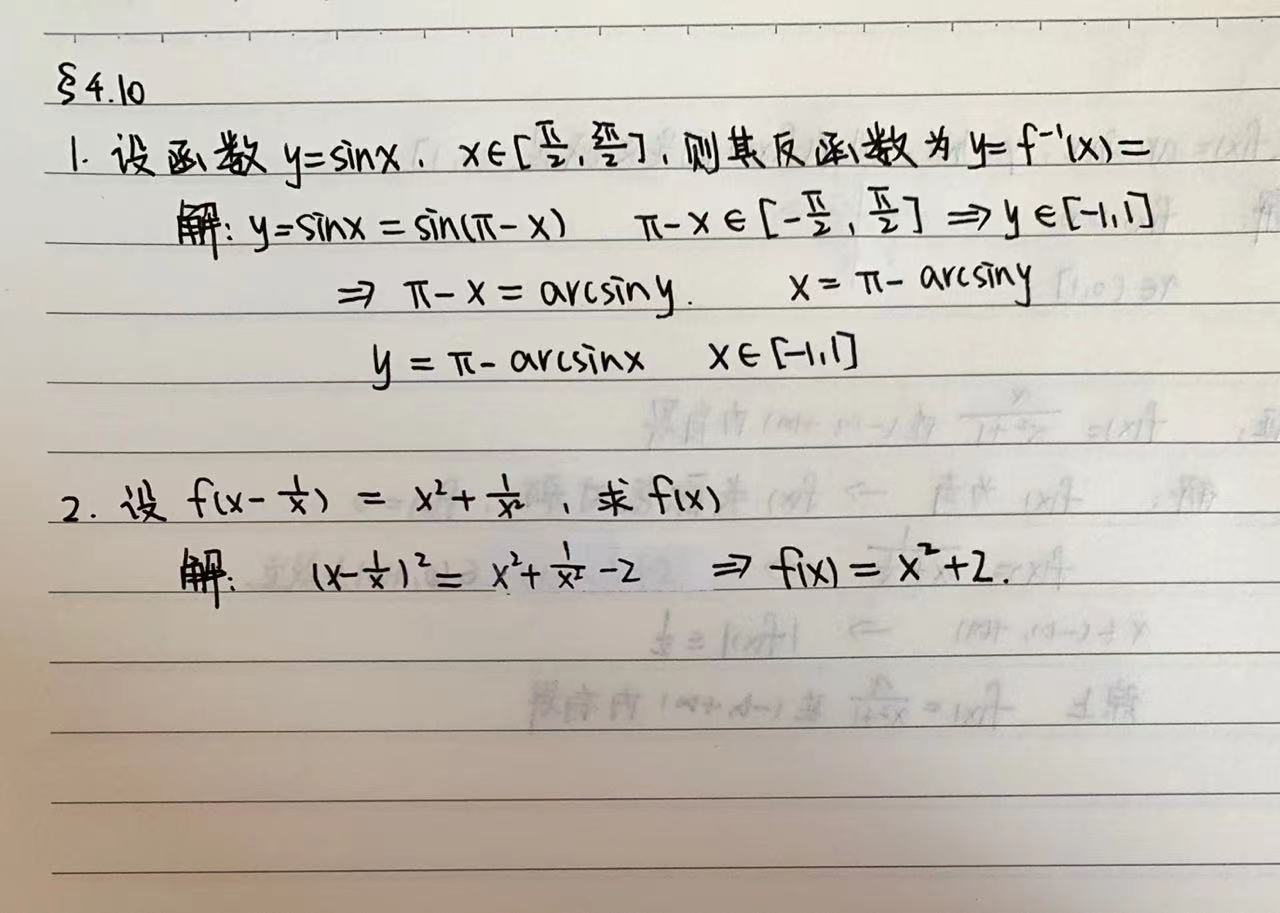 §4.10
1. 设函数 y=sinx, x∈[π/2, 3π/2], 则其反函数为 y=f⁻¹(x)=
解: y=sinx=sin(π-x) π-x∈[-π/2, π/2] ⇒ y∈[-1,1]
⇒ π-x=arcsiny. x=π-arcsiny
y=π-arcsinx x∈[-1,1]
2. 设 f(x-1/x) = x²+1/x², 求 f(x)
解: (x-1/x)²=x²+1/x²-2 ⇒ f(x)=x²+2.